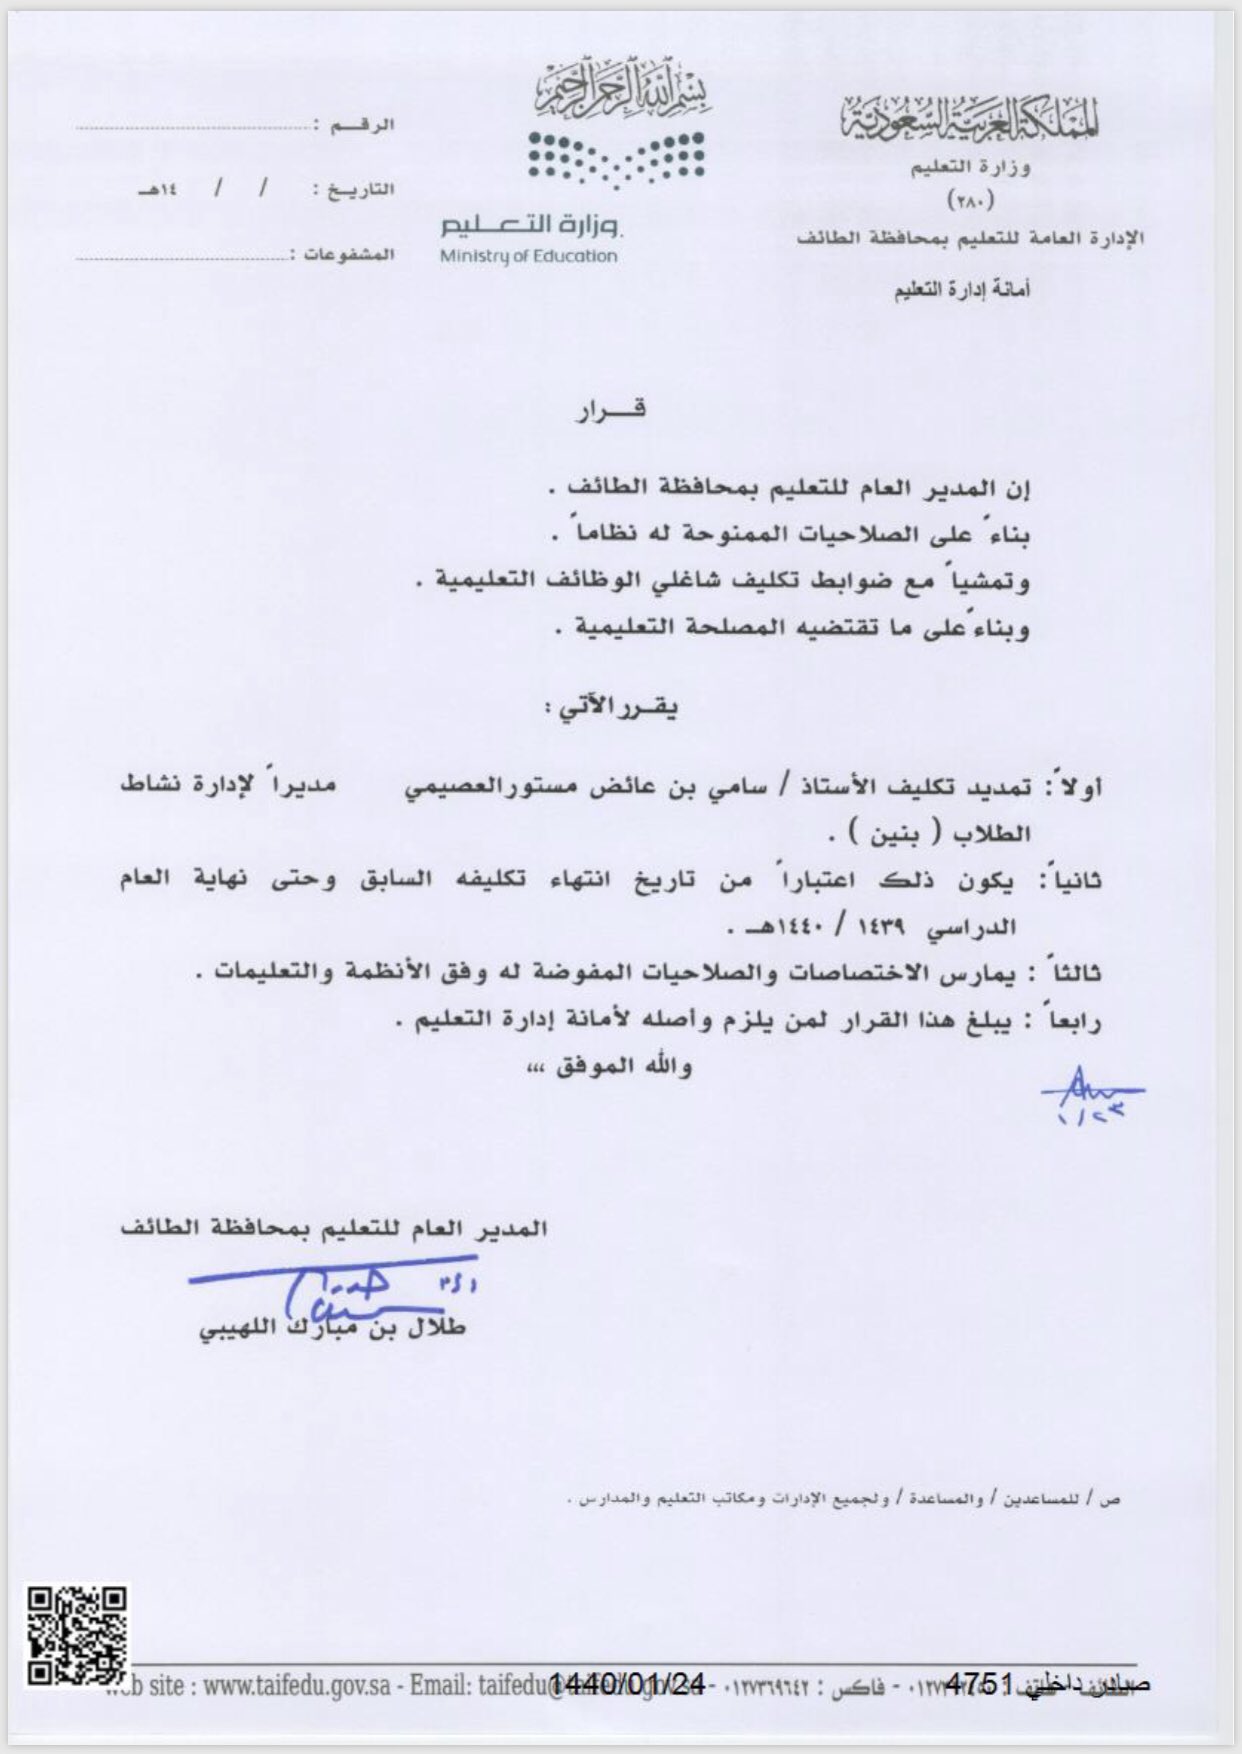 بسم الله الرحمن الرحيم
المملكة العربية السعودية
وزارة التعليم
(٢٨٠)
الإدارة العامة للتعليم بمحافظة الطائف
أمانة إدارة التعليم
وزارة التعليم
Ministry of Education
الرقم :
التاريخ : / / ١٤هـ
المشفوعات :
قرار
إن المدير العام للتعليم بمحافظة الطائف .
بناءً على الصلاحيات الممنوحة له نظاماً .
وتمشياً مع ضوابط تكليف شاغلي الوظائف التعليمية .
وبناءً على ما تقتضيه المصلحة التعليمية .
يقرر الآتي :
أولاً : تمديد تكليف الأستاذ / سامي بن عائض مستور العصيمي مديراً لإدارة نشاط
الطلاب ( بنين ) .
ثانياً : يكون ذلك اعتباراً من تاريخ انتهاء تكليفه السابق وحتى نهاية العام
الدراسي ١٤٣٩ / ١٤٤٠هـ .
ثالثاً : يمارس الاختصاصات والصلاحيات المفوضة له وفق الأنظمة والتعليمات .
رابعاً : يبلغ هذا القرار لمن يلزم وأصله لأمانة إدارة التعليم .
والله الموفق ،،،
المدير العام للتعليم بمحافظة الطائف
طلال بن مبارك اللهيبي
ص / للمساعدين / والمساعدة / ولجميع الإدارات ومكاتب التعليم والمدارس .
صادر داخلي 4751
1440/01/24
الطائف - هاتف : - فاكس : ٠١٢٧٣٦٩٦٤٢ -
site : www.taifedu.gov.sa - Email: taifedu@taifedu.gov.sa